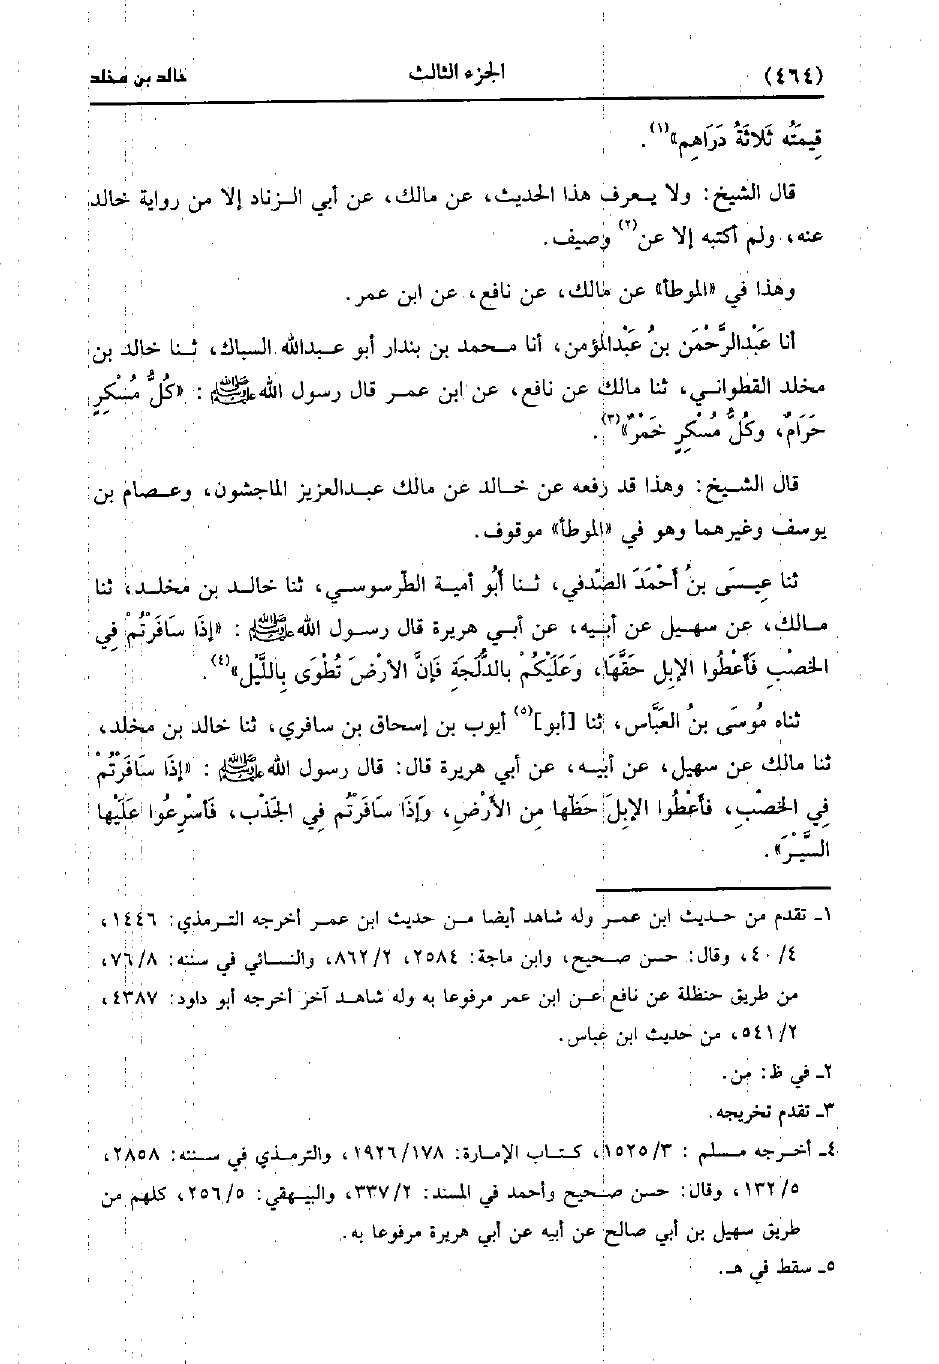 (٤٦٤) الجزء الثالث خالد بن مخلد
قِيمَتُه ثَلاثَةُ دَرَاهِم»(١).
قال الشيخ: ولا يعرف هذا الحديث، عن مالك، عن أبي الزناد إلا من رواية خالد
عنه، ولم أكتبه إلا عن(٢) وصيف.
وهذا في «الموطأ» عن مالك، عن نافع، عن ابن عمر.
أنا عَبْدالرَّحْمَن بنُ عَبْدالمؤمن، أنا محمد بن بندار أبو عبدالله السباك، ثنا خالد بن
مخلد القطواني، ثنا مالك عن نافع، عن ابن عمر قال رسول الله ﷺ: «كُلُّ مُسْكِرٍ
حَرَامٌ، وكُلُّ مُسْكِرٍ خَمْرٌ»(٣).
قال الشيخ: وهذا قد رفعه عن خالد عن مالك عبدالعزيز الماجشون، وعصام بن
يوسف وغيرهما وهو في «الموطأ» موقوف.
ثنا عِيسَى بنُ أَحْمَدَ الصَّدفي، ثنا أَبُو أمية الطّرسوسي، ثنا خالد بن مخلد، ثنا
مالك، عن سهيل عن أبيه، عن أبي هريرة قال رسول الله ﷺ: «إذَا سَافَرْتُمْ فِي
الخصْبِ فَأَعْطُوا الإبل حَقَّهَا، وَعَلَيْكُمْ بالدُّلْجَةِ فَإِنَّ الأرْضَ تُطْوَى بِاللَّيْل»(٤).
ثناه مُوسَى بنُ العَبَّاس، ثنا [أبو](٥) أيوب بن إسحاق بن سافري، ثنا خالد بن مخلد،
ثنا مالك عن سهيل، عن أبيه، عن أبي هريرة قال: قال رسول الله ﷺ: «إذَا سَافَرْتُمْ
فِي الخصْبِ، فأَعْطُوا الإبِلَ حَظّها مِن الأَرْضِ، وَإِذَا سافَرْتُم في الجَدْب، فَأسْرِعُوا عَلَيْها
السَّيْرَ».
١ـ تقدم من حديث ابن عمر وله شاهد أيضا من حديث ابن عمر أخرجه الترمذي: ١٤٤٦،
٤٠/٤، وقال: حسن صحيح، وابن ماجة: ٢٥٨٤، ٨٦٢/٢، والنسائي في سننه: ٧٦/٨،
من طريق حنظلة عن نافع عن ابن عمر مرفوعا به وله شاهد آخر أخرجه أبو داود: ٤٣٨٧،
٥٤١/٢، من حديث ابن عباس.
٢ـ في ظ: من.
٣ـ تقدم تخريجه.
٤ـ أخرجه مسلم: ١٥٢٥/٣، كتاب الإمارة: ١٩٢٦/١٧٨، والترمذي في سننه: ٢٨٥٨،
١٣٢/٥، وقال: حسن صحيح وأحمد في المسند: ٣٣٧/٢، والبيهقي: ٢٥٦/٥، كلهم من
طريق سهيل بن أبي صالح عن أبيه عن أبي هريرة مرفوعا به.
٥ـ سقط في هـ.